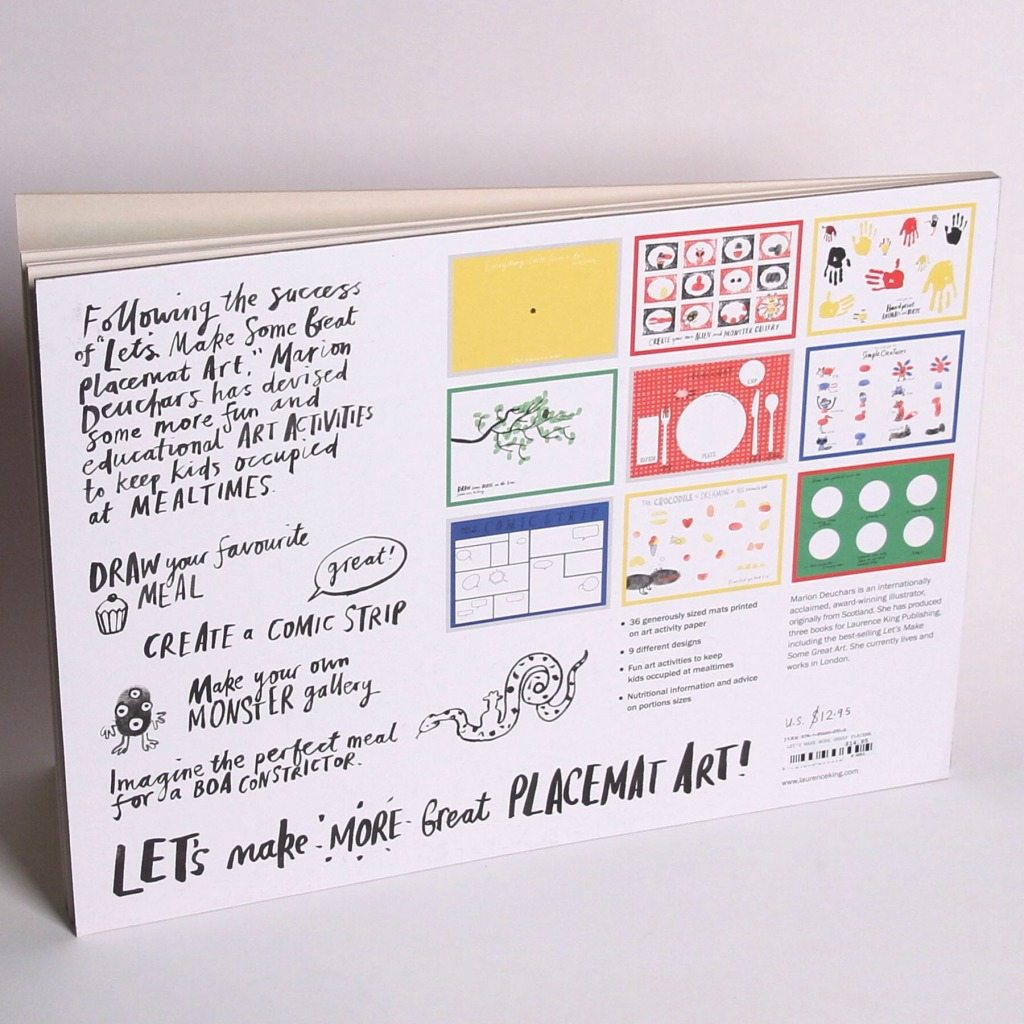 Following the success
of "Let's Make Some Great
Placemat Art," Marion
Deuchars has devised
some more fun and
educational ART ACTIVITIES
to keep kids occupied
at MEALTIMES.
DRAW your favourite
MEAL
great!
CREATE a COMIC STRIP
Make your own
MONSTER gallery
Imagine the perfect meal
for a BOA CONSTRICTOR.
LET's make MORE Great PLACEMAT ART!
CREATE your own ALIEN and MONSTER GALLERY
Handprint
Simple Creatures
DRAW some
CUP
KNIFE
PLATE
COMIC STRIP
THE CROCODILE is DREAMING of
• 36 generously sized mats printed
on art activity paper
• 9 different designs
• Fun art activities to keep
kids occupied at mealtimes
• Nutritional information and advice
on portions sizes
Marion Deuchars is an internationally
acclaimed, award-winning illustrator,
originally from Scotland. She has produced
three books for Laurence King Publishing,
including the best-selling Let's Make
Some Great Art. She currently lives and
works in London.
U.S. $12.95
LET'S MAKE MORE GREAT PLACEM
$14.95
www.laurenceking.com